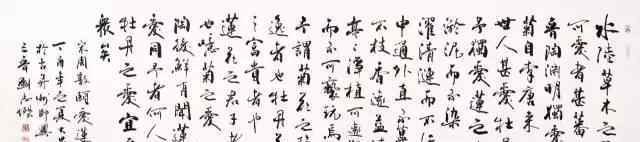 水陸草木之
可愛者甚蕃
晉陶淵明獨愛
菊自李唐來
世人甚愛牡丹
予獨愛蓮之
淤泥而不染
濯清漣而不
中通外直不蔓
不枝香遠益清
亭亭淨植可遠
而不可褻玩焉
予謂菊花之
逸者也牡丹
之富貴者也
蓮花之君子
也噫菊之愛
陶後鮮有聞蓮
愛同予者何人
牡丹之愛宜
衆矣
宋周敦頤愛蓮
丁酉年之
於古并州
三晉劉